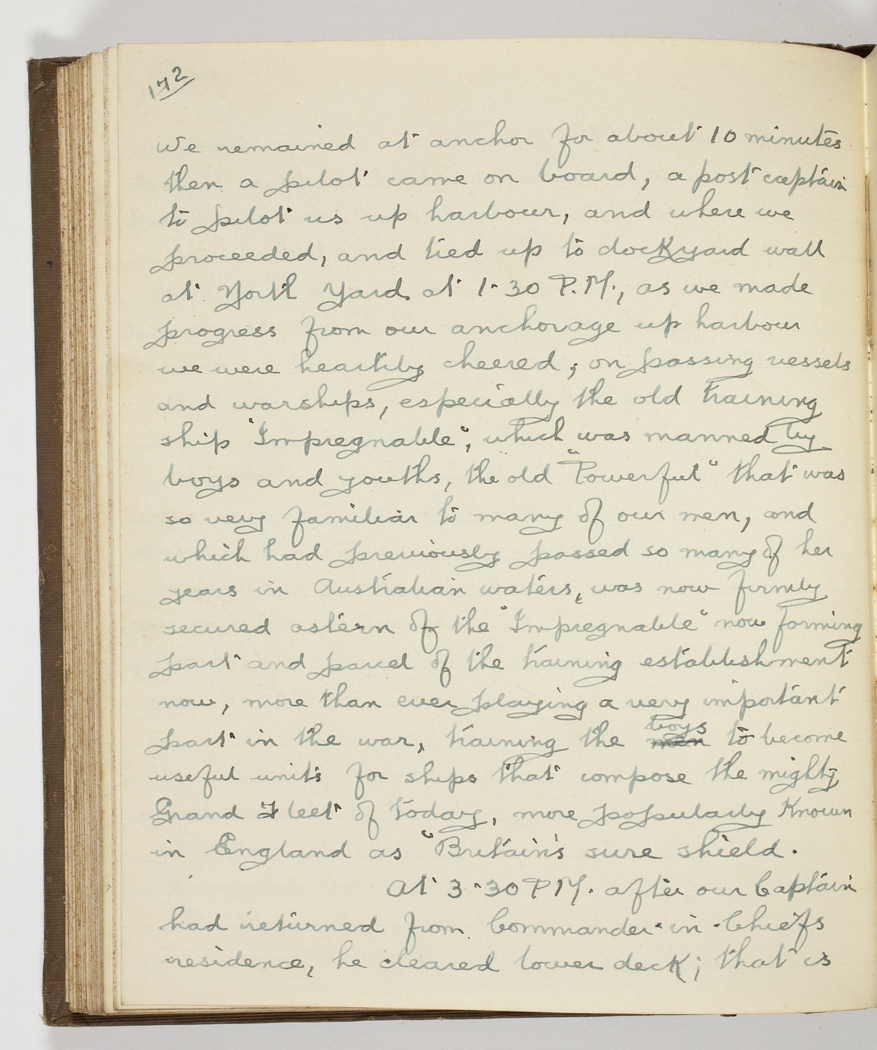 172
we remained at anchor for about 10 minutes
then a pilot came on board, a post captain
to pilot us up harbour, and where we
proceeded, and tied up to dockyard wall
at North Yard at 1.30 P.M., as we made
progress from our anchorage up harbour
we were heartily cheered; on passing vessels
and warships, especially the old training
ship "Impregnable", which was manned by
boys and youths, the old "Powerful" that was
so very familiar to many of our men, and
which had previously passed so many of her
years in Australian waters, was now firmly
secured astern of the "Impregnable" now forming
part and parcel of the training establishment
now, more than ever playing a very important
part in the war, training the men boys to become
useful units for ships that compose the mighty
Grand Fleet of today, more popularly Known
in England as "Britain's sure shield.
At 3.30 P.M. after our Captain
had returned from Commander-in-Chiefs
residence, he cleared lower deck; that is